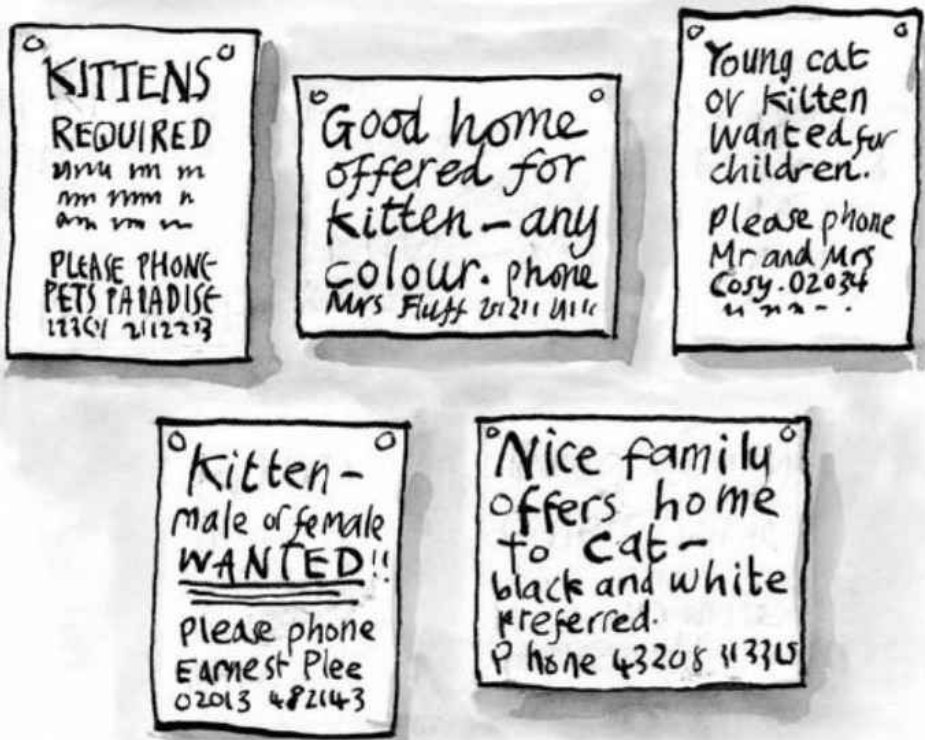 KITTENS
REQUIRED
PLEASE PHONE
PETS PARADISE
Good home
offered for
kitten – any
colour. phone
Mrs Fluff
Young cat
or kitten
wanted for
children.
Please phone
Mr and Mrs
Cosy. 02034
Kitten –
male or female
WANTED!!
Please phone
Earnest Plee
02013 482143
Nice family
offers home
to cat –
black and white
preferred.
Phone 43208